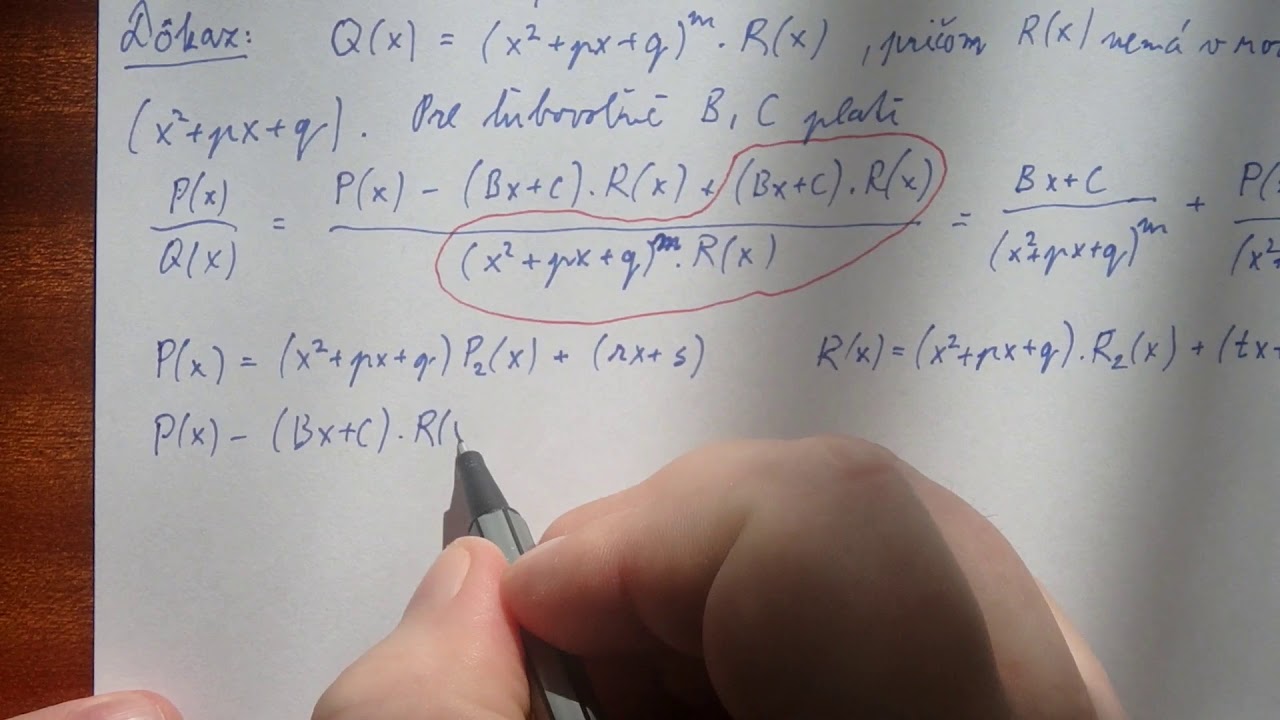 Dôkaz: Q(x) = (x²+px+q)ᵐ. R(x), pričom R(x) nemá v
(x²+px+q). Pre ľubovoľné B, C platí
P(x)/Q(x) = (P(x) - (Bx+C). R(x) + (Bx+C). R(x))/((x²+px+q)ᵐ. R(x)) = (Bx+C)/((x²+px+q)ᵐ) +
P(x) = (x²+px+q) P₂(x) + (rx+s) R(x) = (x²+px+q). R₂(x) + (tx+
P(x) - (Bx+C). R(